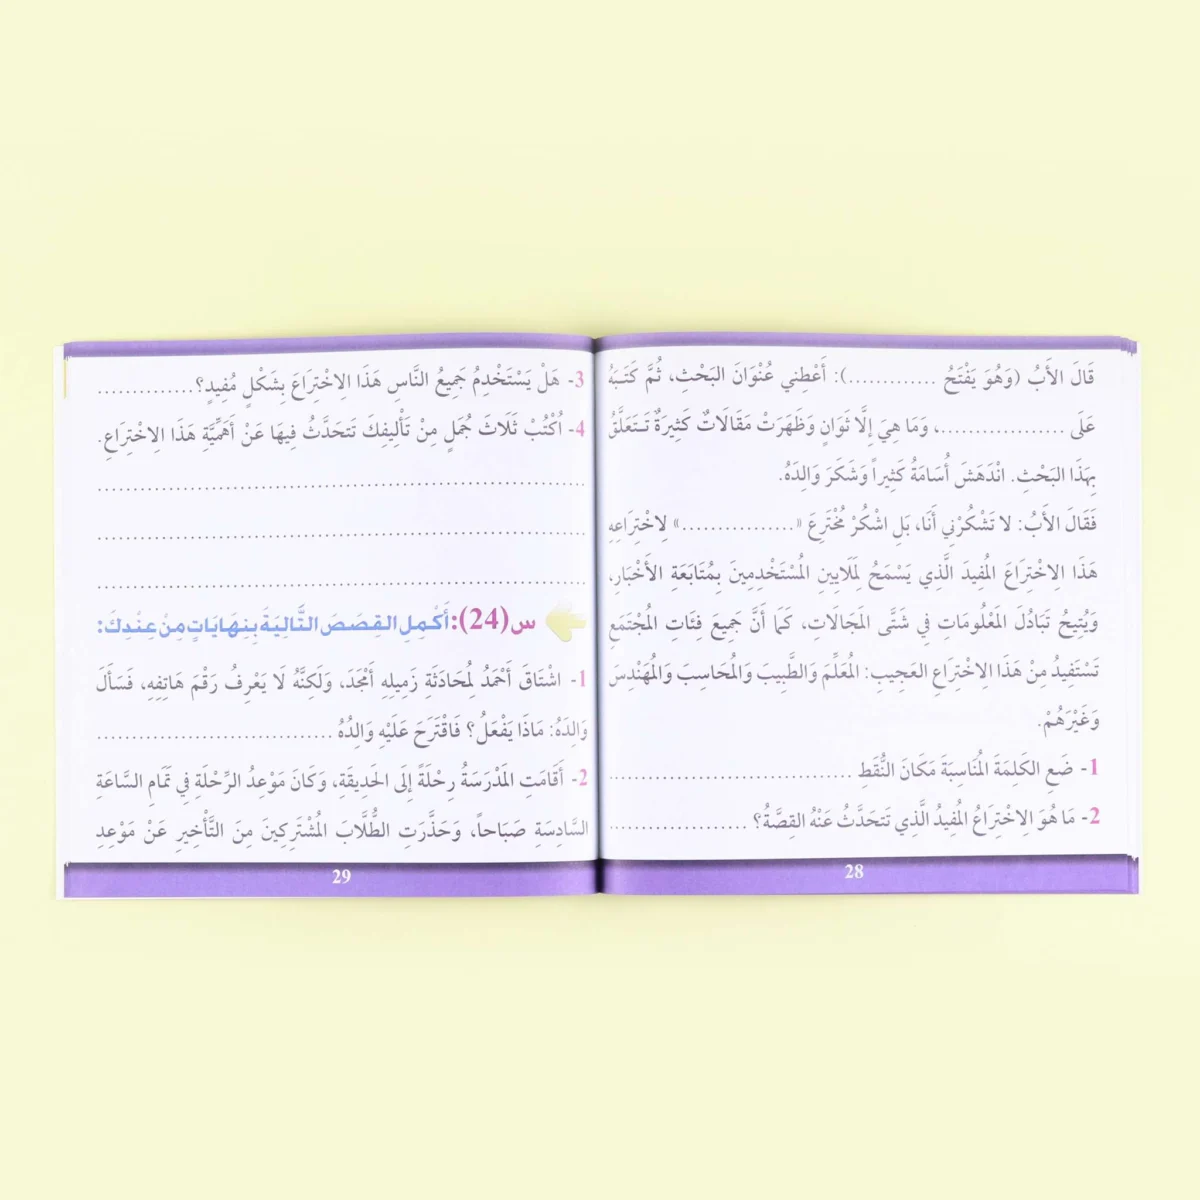 قَالَ الأَبُ (وَهُوَ يَفْتَحُ ............): أَعْطِنِي عُنْوَانَ البَحْثِ، ثُمَّ كَتَبَهُ
عَلَى ..................، وَمَا هِيَ إِلَّا ثَوَانٍ وَظَهَرَتْ مَقَالَاتٌ كَثِيرَةٌ تَتَعَلَّقُ
بِهَذَا البَحْثِ. انْدَهَشَ أُسَامَةُ كَثِيراً وَشَكَرَ وَالِدَهُ.
فَقَالَ الأَبُ: لا تَشْكُرْنِي أَنَا، بَلِ اشْكُرْ مُخْتَرِعَ «................» لِاخْتِرَاعِهِ
هَذَا الِاخْتِرَاعَ المُفِيدَ الَّذِي يَسْمَحُ لِمَلَايِينِ المُسْتَخْدِمِينَ بِمُتَابَعَةِ الأَخْبَارِ،
وَيُتِيحُ تَبَادُلَ المَعْلُومَاتِ فِي شَتَّى المَجَالَاتِ، كَمَا أَنَّ جَمِيعَ فِئَاتِ المُجْتَمَعِ
تَسْتَفِيدُ مِنْ هَذَا الِاخْتِرَاعِ العَجِيبِ: المُعَلِّمَ وَالطَّبِيبَ وَالمُحَاسِبَ وَالمُهَنْدِسَ
وَغَيْرَهُمْ.
1- ضَعِ الكَلِمَةَ المُنَاسِبَةَ مَكَانَ النُّقَطِ ..................................
2- مَا هُوَ الِاخْتِرَاعُ المُفِيدُ الَّذِي تَتَحَدَّثُ عَنْهُ القِصَّةُ؟ ....................
28
3- هَلْ يَسْتَخْدِمُ جَمِيعُ النَّاسِ هَذَا الِاخْتِرَاعَ بِشَكْلٍ مُفِيدٍ؟..............
4- اُكْتُبْ ثَلَاثَ جُمَلٍ مِنْ تَأْلِيفِكَ تَتَحَدَّثُ فِيهَا عَنْ أَهَمِّيَّةِ هَذَا الِاخْتِرَاعِ.
......................................................................
......................................................................
......................................................................
س(24): أَكْمِلِ القِصَصَ التَّالِيَةَ بِنِهَايَاتٍ مِنْ عِنْدِكَ:
1- اشْتَاقَ أَحْمَدُ لِمُحَادَثَةِ زَمِيلِهِ أَمْجَدَ، وَلَكِنَّهُ لَا يَعْرِفُ رَقْمَ هَاتِفِهِ، فَسَأَلَ
وَالِدَهُ: مَاذَا يَفْعَلُ؟ فَاقْتَرَحَ عَلَيْهِ وَالِدُهُ ..................................
2- أَقَامَتِ المَدْرَسَةُ رِحْلَةً إِلَى الحَدِيقَةِ، وَكَانَ مَوْعِدُ الرِّحْلَةِ فِي تَمَامِ السَّاعَةِ
السَّادِسَةِ صَبَاحاً، وَحَذَّرَتِ الطُّلَّابَ المُشْتَرِكِينَ مِنَ التَّأْخِيرِ عَنْ مَوْعِدِ
29